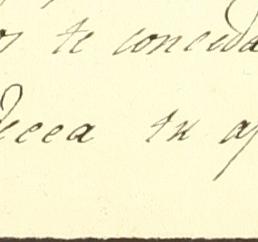 os te conceda
decea tu af